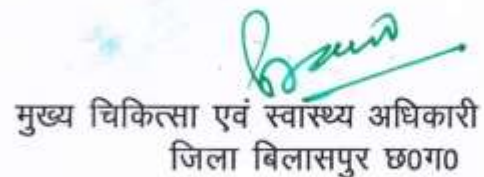 मुख्य चिकित्सा एवं स्वास्थ्य अधिकारी
जिला बिलासपुर छ0ग0